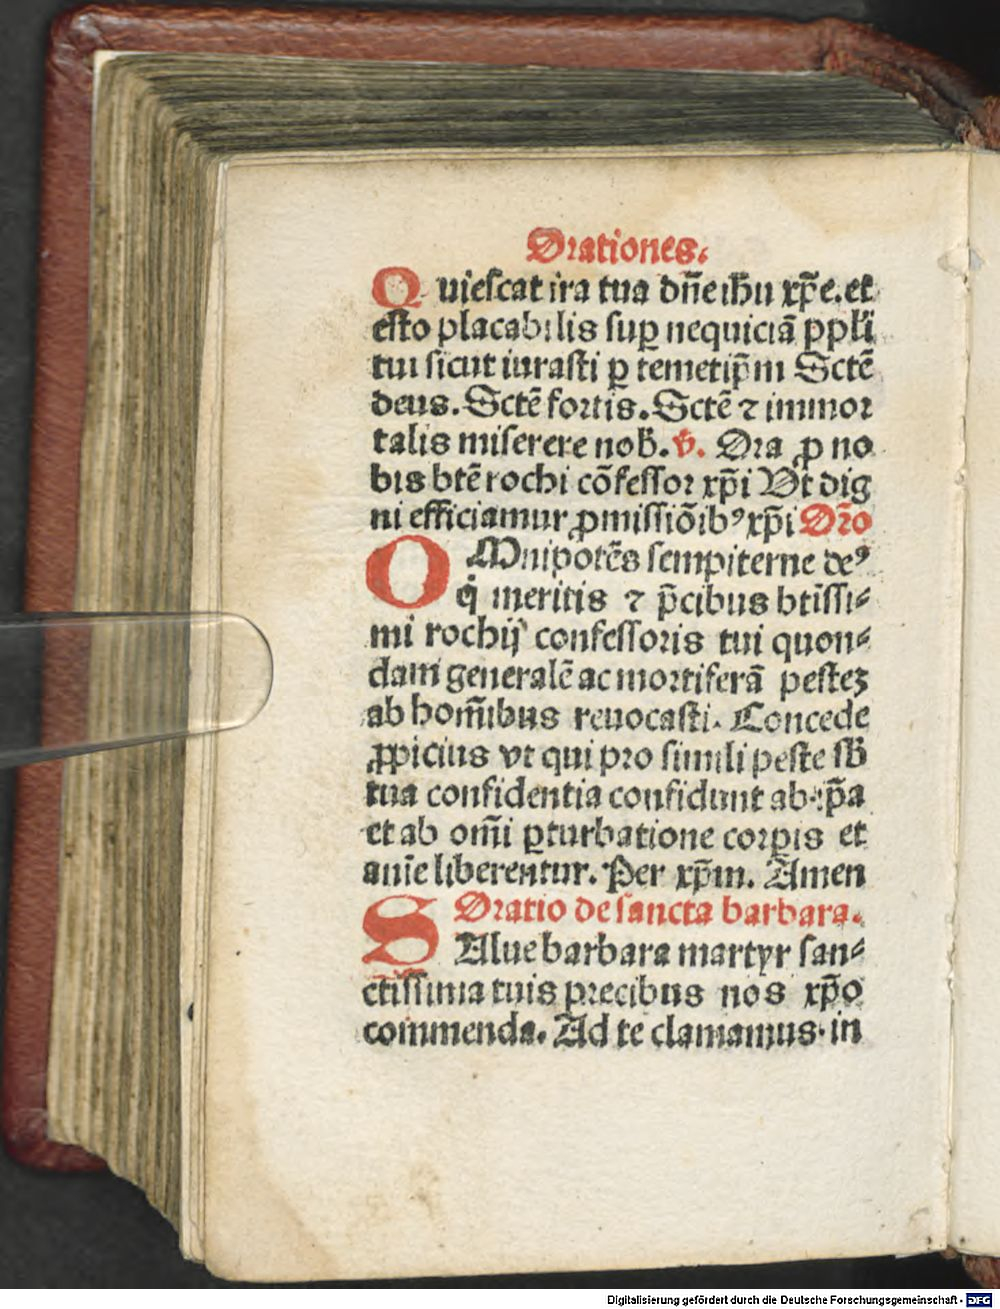 Orationes.
Quiescat ira tua dn̄e ihū xp̄e. et
esto placabilis suꝑ nequiciā ppl̄i
tui sicut iurasti ꝑ temetip̄m Sctē
deus. Sctē fortis. Sctē ⁊ immor
talis miserere nob̄. v̄. Ora ꝓ no
bis btē rochi cōfessor xp̄i Vt dig
ni efficiamur ꝓmissiōibꝰ xp̄i Or̄o
OMnipotēs sempiterne deꝰ
q̄ meritis ⁊ p̄cibus btīssi⸗
mi rochij confessoris tui quon⸗
dam generalē ac mortiferā pestez
ab hom̄ibus reuocasti. Concede
ꝓpicius vt qui pro simili peste sb̄
tua confidentia confidunt ab ip̄a
et ab om̄i ꝑturbatione corꝑis et
anīe liberentur. Per xp̄m. Amen
Oratio de sancta barbara.
SAlue barbara martyr san⸗
ctīssima tuis precibus nos xp̄o
commenda. Ad te clamamus in
Digitalisierung gefördert durch die Deutsche Forschungsgemeinschaft - DFG